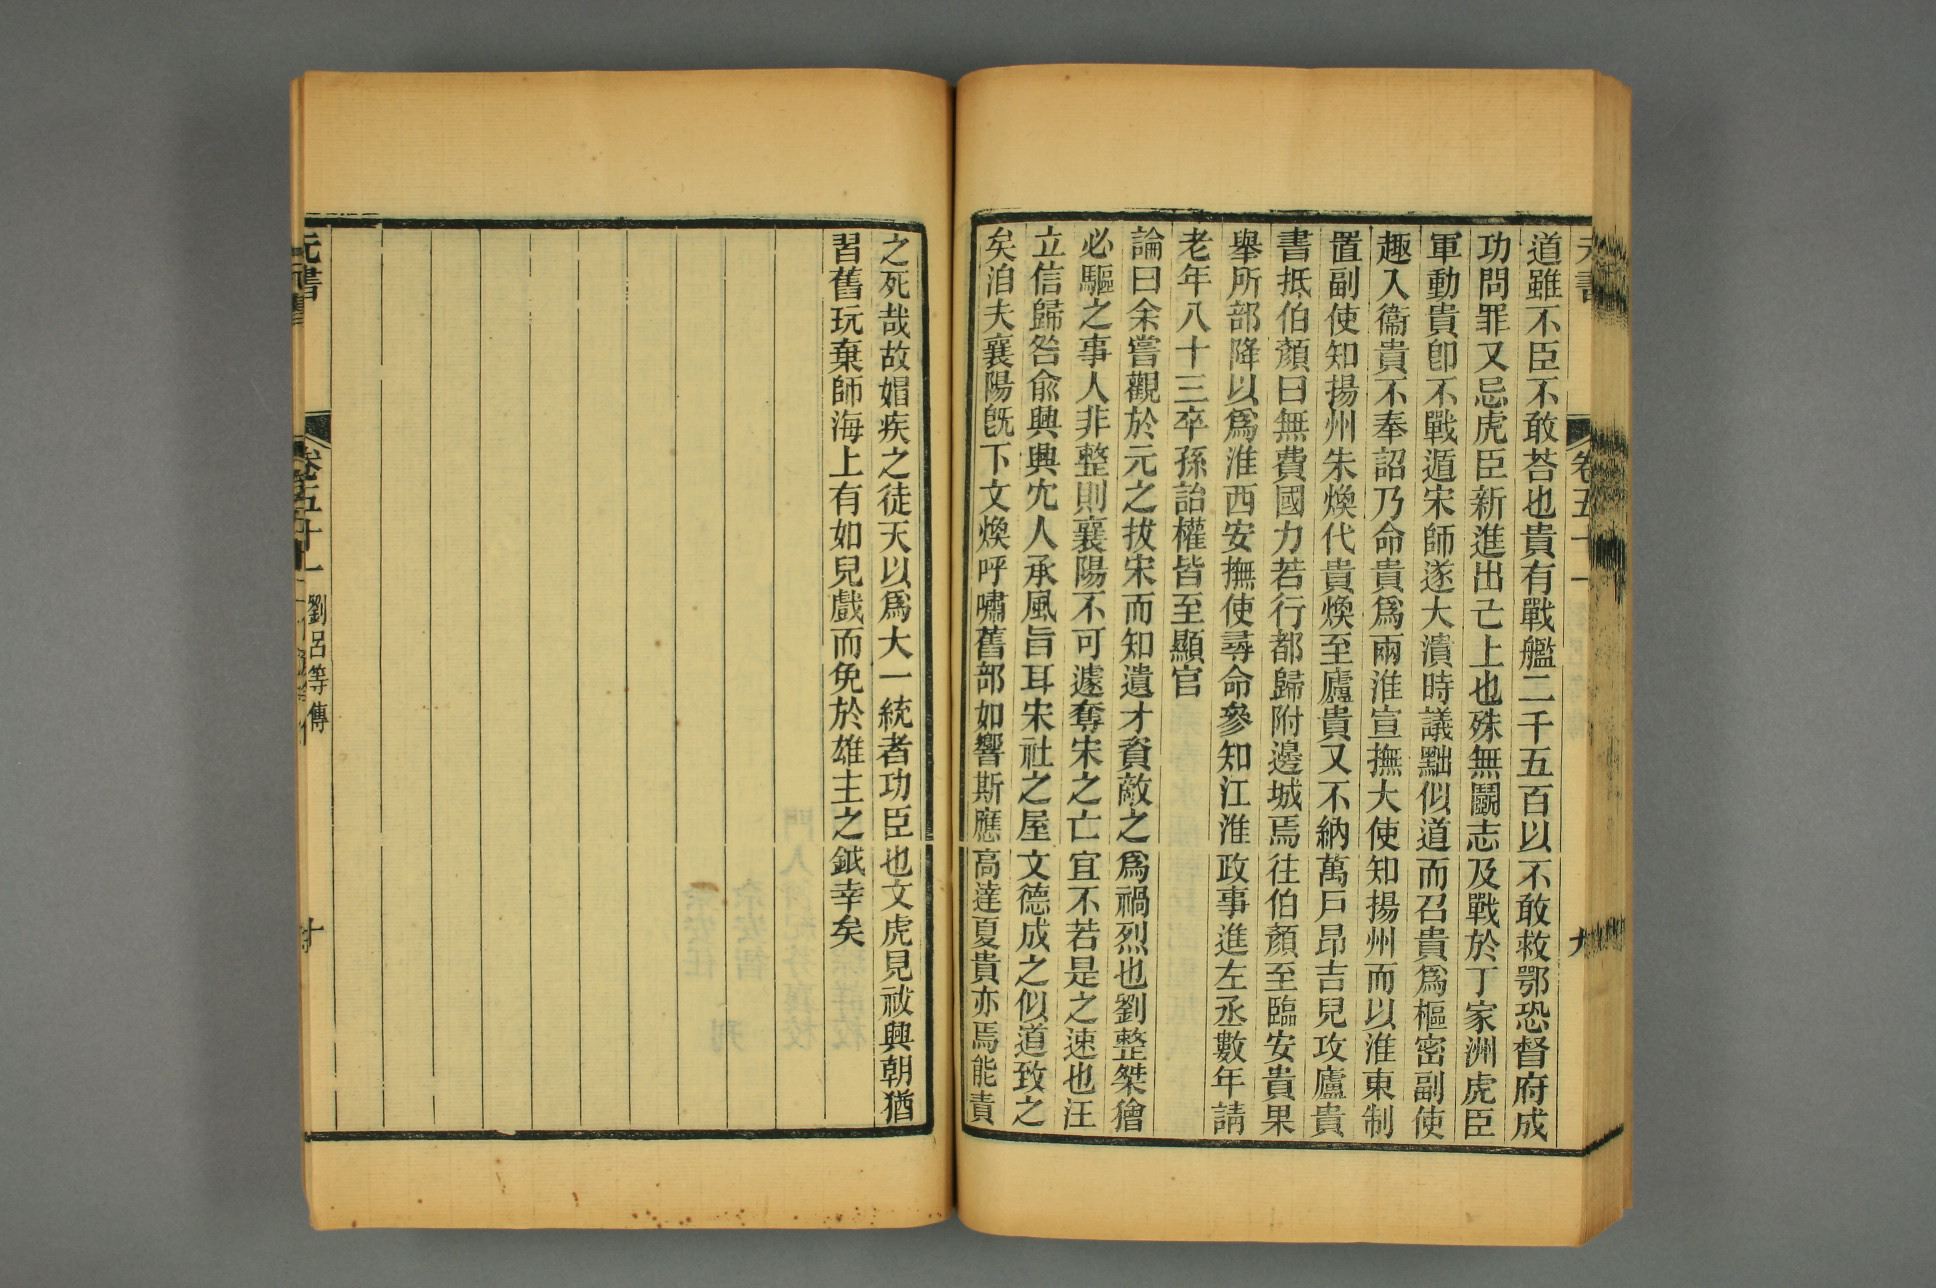 道雖不臣不敢荅也貴有戰艦二千五百以不敢救鄂恐督府成
功問罪又忌虎臣新進出己上也殊無鬬志及戰於丁家洲虎臣
軍動貴卽不戰遁宋師遂大潰時議黜似道而召貴爲樞密副使
趣入衞貴不奉詔乃命貴爲兩淮宣撫大使知揚州而以淮東制
置副使知揚州朱煥代貴煥至廬貴又不納萬戶昂吉兒攻廬貴
書抵伯顏曰無費國力若行都歸附邊城焉往伯顏至臨安貴果
舉所部降以爲淮西安撫使尋命參知江淮政事進左丞數年請
老年八十三卒孫詒權皆至顯官
論曰余嘗觀於元之拔宋而知遺才資敵之爲禍烈也劉整桀獪
必驅之事人非整則襄陽不可遽奪宋之亡宜不若是之速也汪
立信歸咎俞興興宂人承風旨耳宋社之屋文德成之似道致之
矣洎夫襄陽旣下文煥呼嘯舊部如響斯應高達夏貴亦焉能責
之死哉故媢疾之徒天以爲大一統者功臣也文虎見祓興朝猶
習舊玩棄師海上有如兒戲而免於雄主之鉞幸矣
元書
卷五十一
劉呂等傳
十
卷五十一
九